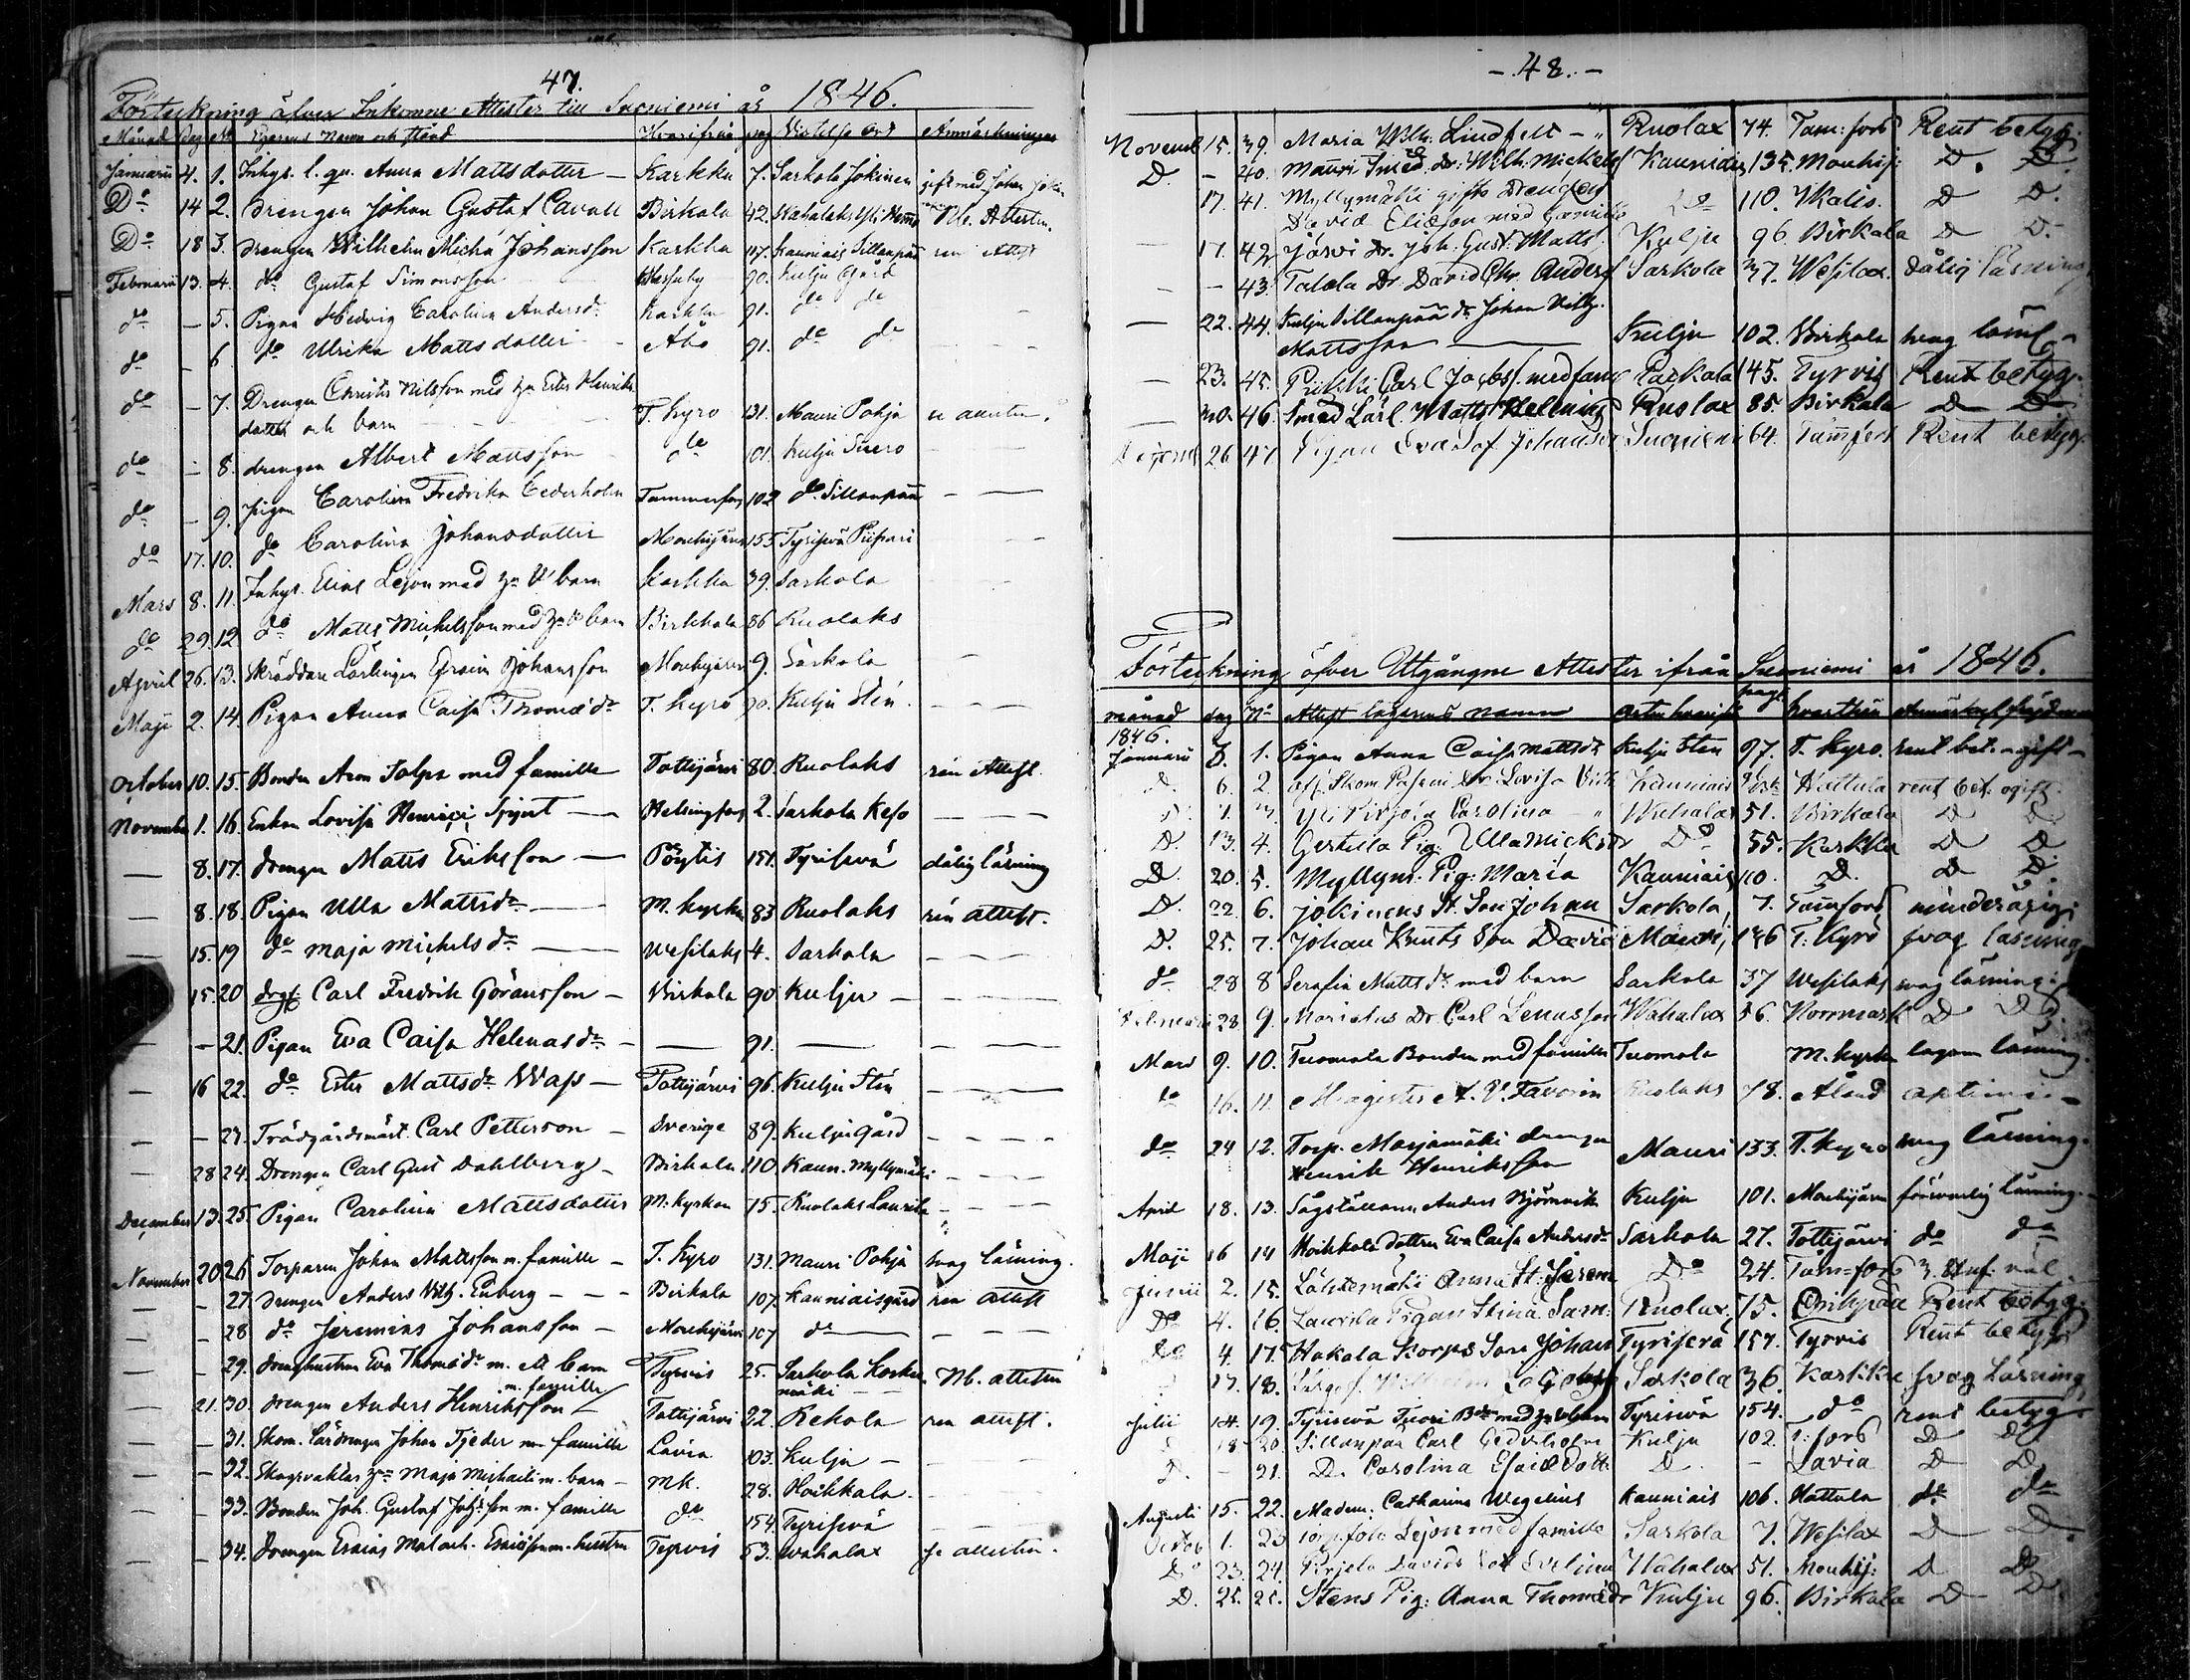 47.
Förteckning öfver Inkomne Attester till Suoniemi år 1846.
Månad Dag No Egarens Namn och stånd Hvarifrån pag Vistelse Ort Anmärkningar
Januarii 4. 1. Inhys. l. qv. Anna Mattsdotter — Karkku 7. Sarkola Jokinen gift med Johan
Do 14 2. Drengen Johan Gustaf Cavall Birkala 42. Nb. Attesten.
Do 18 3. Drengen Wilhelm Micha Johansson Karkku 117. Kauniais Sillanpää ren Attest
Februarii 13. 4. do Gustaf Simonsson 90. Kulju Gård
do — 5. Pigan Hedvig Carolina Andersdr Karkku 91. do do
do — 6 do Ulrika Mattsdotter Åbo 91. do do
do — 7. Drengen Christer Nilsson med h:u Ester Henriks
dotter och barn T. Kyro 131. Mauri Pohja
do — 8. drengen Albert Mattsson do 101. Kulju Suero
do — 9. pigan Carolina Fredrika Cederholm Tammerfors 102 do Sillanpää
do 17. 10. do Carolina Johansdotter Mouhijärvi 155 Tyrisevä
Mars 8. 11. Inhys. Elias Lejon med h:u & barn Karkku 39. Sarkola
do 29. 12 do Matts Michelsson med h:u & barn Birkkala 86 Ruolaks
April 26. 13. Skräddare Lärlingen Efraim Johansson Mouhijärvi 9. Sarkola
Maji 2. 14. Pigan Anna Caisa Thomædr T. Kyro 90. Kulju Sten
October 10. 15. Bonden Aron Tolpa med famille Tottijärvi 80. Ruolaks ren Attest.
November 1. 16. Enkan Lovisa Henrici — Helsingfors 2. Sarkola Keso
— 8. 17. drengen Matts Eriksson — Pöytis 151. Tyrisevä dålig läsning
— 8. 18. Pigan Ulla Mattsdr — M. Kyrka 83 Ruolaks ren attest.
— 15. 19 do Maja Michelsdr — Vesilaks 4. Sarkola
15. 20 drgs. Carl Fredrik Göransson — Birkala 90 Kulju —
— 21. Pigan Eva Caisa Helenasdr — 91. —
— 16 22. do Ester Mattsdr Wass — Tottijärvi 96. Kulju Sten
— — 23. Trädgårdsmäst. Carl Petterson — Sverige 89. Kuljugård
— 28 24. Drengen Carl Gust Dahlberg — Birkala 110 Kaun. Myllymäki
December 13. 25. Pigan Carolina Mattsdotter M. Kyrkan 75. Ruolaks Laurila
November 20 26 Torparen Johan Mattsson m. famille — T. Kyro 131. Mauri Pohja svag läsning.
— — 27. drengen Anders Wilh. Enberg — Birkala 107. Kauniaisgård ren attest
— — 28 do Jeremias Johansson — Mouhijärvi 107 do
— — 29. drenghustrun Eva Thomædr m. ett barn Tyrvis 25. Sarkola Koskenmäki Nb. attesten
— 21. 30. drengen Anders Henriksson m. famille Tottijärvi 22. Rekola ren attest.
— — 31. Skom. Lärdrengen Johan Tjeder m. famille Lavia 103. Kulju —
— — 32. Skogvaktar h:n Maja Michaeli m. barn — MK. 28. Hoikkala.
— — 33. Bonden Joh. Gustaf Joh:sson m. famille do 154. Tyrisevä
— — 34. Drengen Esaias Malach. Esaiasson m. hustru Tyrvis 53. Wahalax se attesten.
— 48. —
Novemb 15. 39. Maria Wilh: Lindfelt — Ruolax 74. Tam: fors Rent betyg.
D. — 40. Mauri Smed. dr: Wilh. Mickels Kauniais 135. Mouhij: D. D.
17. 41. Myllymäki gifte Drengen
David Eliasson med famille Do 110. Walis. D D.
— 17. 42 Järvi Dr. Joh: Gust: Matts Kulju 96. Birkala D D.
— — 43. Talala Dr. David Chr. Anders Sarkola 37. Wesilax. dålig läsning
— 22. 44. Kulju Sillanpää dr Johan Wilh.
Mattsson — Kulju 102. Birkala svag läsn.
— 23. 45. Carl Jacobs. med fam 145. Tyrvis Rent betyg.
— 30. 46. Smed Lärl. Matts Hellning Ruolax 85. Birkala D D
Decemb 26 47 Pigan Eva Sof. Johansdr Suoniemi 64. Tammerf Rent betyg.
Förteckning öfver Utgångne Attester ifrån Suoniemi år 1846.
månad dag No Attest tagarens namn orten hvarifr pag. hvarthän
1846.
Januarii 3. 1. Pigan Anna Caisa Mattsdr Kulju Sten 97. T. Kyro. rent bet. ogift —
D. 6. 2. Kauniais Hattula rent bet. ogift.
7. 3. Yli Pirjola Carolina Wahalax 51. Birkala D D
D. 13. 4. Gertulla Pig. Ulla Micksdr Do 55. Karkku D D
D. 20. 5. Myllym: Pig: Maria Kauniais 110. D. D D.
D. 22. 6. Jokinens St. Son Johan Sarkola, 7. Tamfors minderårig;
D. 25. 7. Johan Knuts Son David Mauri, 136 T: Kyro svag läsning
do 28 8 Serafia Matts dr med barn Sarkola 37 Wesilaks svag läsning:
Februari 28. 9. Dr Carl Lenusson Wahalax 56. Norrmark D D.
Mars 9. 10. Tuomola Bonden med famille Tuomola M. Kyrka lagom läsning.
do 16. 11. Magister A. V. Favorin Ruolaks 78. Åland optime —
do 24 12. Torp. Marjamäki drengen
Henrik Henriksson Mauri 133. T. Kyro svag läsning.
April 18. 13. Sågställaren Anders Björnvik Kulju 101. Mouhijärvi försvarlig läsning.
Maji 16 14 Hoikkala dottren Eva Caisa Andersdr Sarkola 27. Tottijärvi do do
Junii 2. 15. Anna St: Jerem Do 24. Tam=fors
Do 4. 16. Laurila Pigan Stina Sam: Ruolax, 75. Orihpää Rent betyg.
Do 4. 17. Hakala Korps Son Johan Tyriseva 157. Tyrvis Rent betyg
17. 18. Sarkola 36. Karkku svag Läsning
Julii 14. 19. Tyrisevä Tuori B. med h:u & barn Tyrisevä 154. do rent betyg
18 20. Sillanpää Carl Cederholm Kulju 102. T: fors D D
D. — 21. D. Carolina Esaiedott. D. — Lavia D D
Augusti 15. 22. Madem. Catharina Wegelius Kauniais 106. Hattula do do
Octob 1. 23 Torp. Lejon med famille Sarkola 7. Wesilax D D.
Do 23. 24. Pirjola Davids Dot Evelina Wahalax 51. Mouhij: D D
D. 25. 25. Stens Pig: Anna Thomædr Kulju 96. Birkala D D